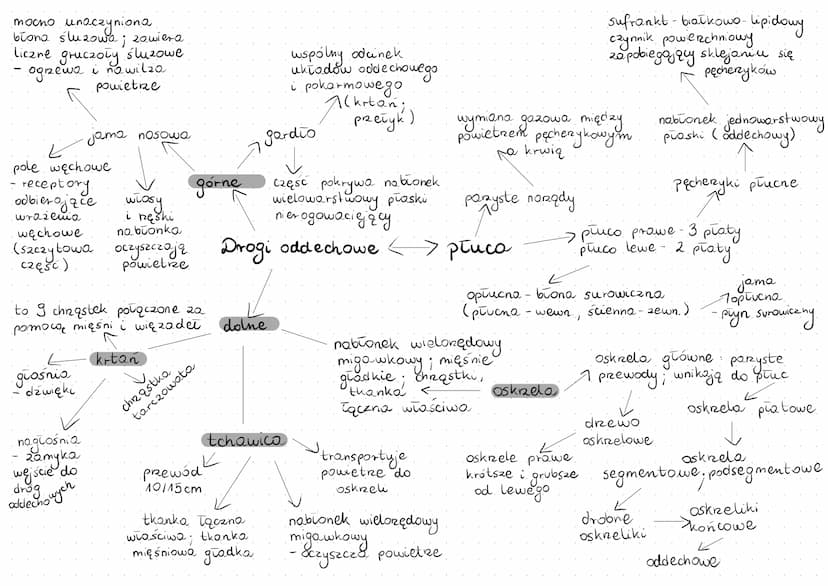 mocno unaczyniona
błona śluzowa; zawiera
liczne gruczoły śluzowe
- ogrzewa i nawilża
powietrze
jama nosowa
pole węchowe
- receptory
odbierające
wrażenia
węchowe
(szczytowa
część)
włosy
i rzęski
nabłonka
oczyszczają
powietrze
górne
gardło
wspólny odcinek
układów oddechowego
i pokarmowego
(krtań;
przełyk)
część pokrywa nabłonek
wielowarstwowy płaski
nierogowaciejący
Drogi oddechowe
płuca
wymiana gazowa między
powietrzem pęcherzykowym
a krwią
parzyste narządy
sufrankt - białkowo-lipidowy
czynnik powierzchniowy
zapobiegający sklejaniu się
pęcherzyków
nabłonek jednowarstwowy
płaski (oddechowy)
pęcherzyki płucne
płuco prawe - 3 płaty
płuco lewe - 2 płaty
opłucna - błona surowicza
(płucna - wewn., ścienna - zewn.)
jama
opłucna
- płyn surowiczny
dolne
to 9 chrząstek połączone za
pomocą mięśni i więzadeł
krtań
głośnia
- dźwięki
chrząstka
tarczowata
nagłośnia
- zamyka
wejście do
dróg
oddechowych
tchawica
przewód
10/15cm
transportuje
powietrze do
oskrzeli
tkanka łączna
właściwa; tkanka
mięśniowa gładka
nabłonek wielorzędowy
migawkowy
- oczyszcza powietrze
nabłonek wielorzędowy
migawkowy; mięśnie
gładkie; chrząstki,
tkanka
łączna właściwa
oskrzela
oskrzela główne - parzyste
przewody; wnikają do płuc
drzewo
oskrzelowe
oskrzele prawe
krótsze i grubsze
od lewego
oskrzela płatowe
oskrzela
segmentowe; podsegmentowe
drobne
oskrzeliki
oskrzeliki
końcowe
oddechowe